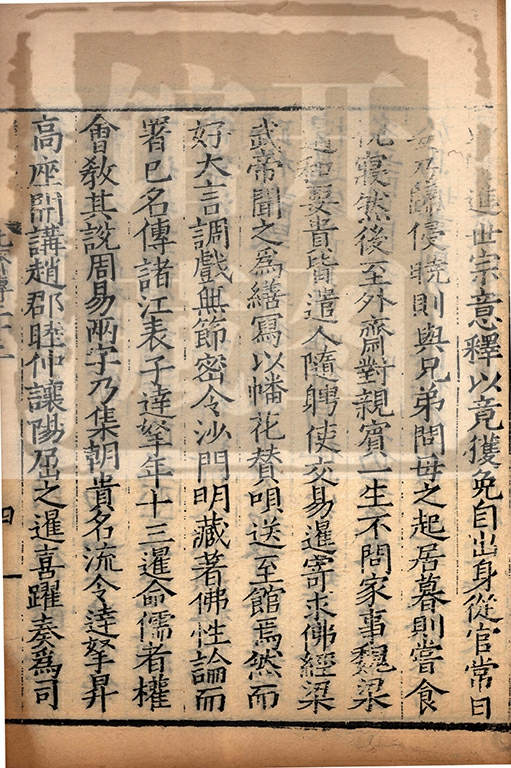 進世宗意釋以竟獲免自出身從官常日
侵曉則與兄弟問母之起居暮則嘗食
寢然後至外齋對親賓一生不問家事魏梁
通和要貴皆遣人隨聘使交易暹寄求佛經梁
武帝聞之為繕寫以幡花贊唄送至館焉然而
好大言調戲無節密令沙門明藏著佛性論而
署已名傳諸江表子達拏年十三暹命儒者權
會教其說周易兩字乃集朝貴名流令達拏昇
高座開講趙郡睦仲讓陽屈之暹喜躍奏為司